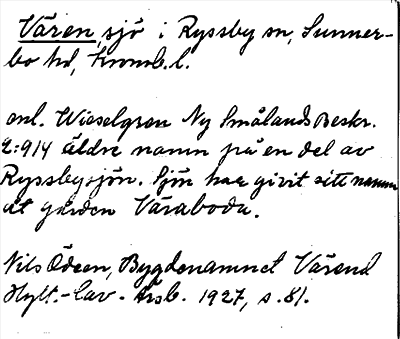 Vären sjö i Ryssby sn, Sunner-
bo hd, Kronob. l.
enl. Wieselgren Ny Smålands Beskr.
2:914 äldre namn på en del av
Ryssbysjön. Sjön har givit sitt namn
åt gården Väraboda.
Nils Ödeen, Bygdenamnet Värend
Hylt.-Cav. Årsb. 1927, s. 81.